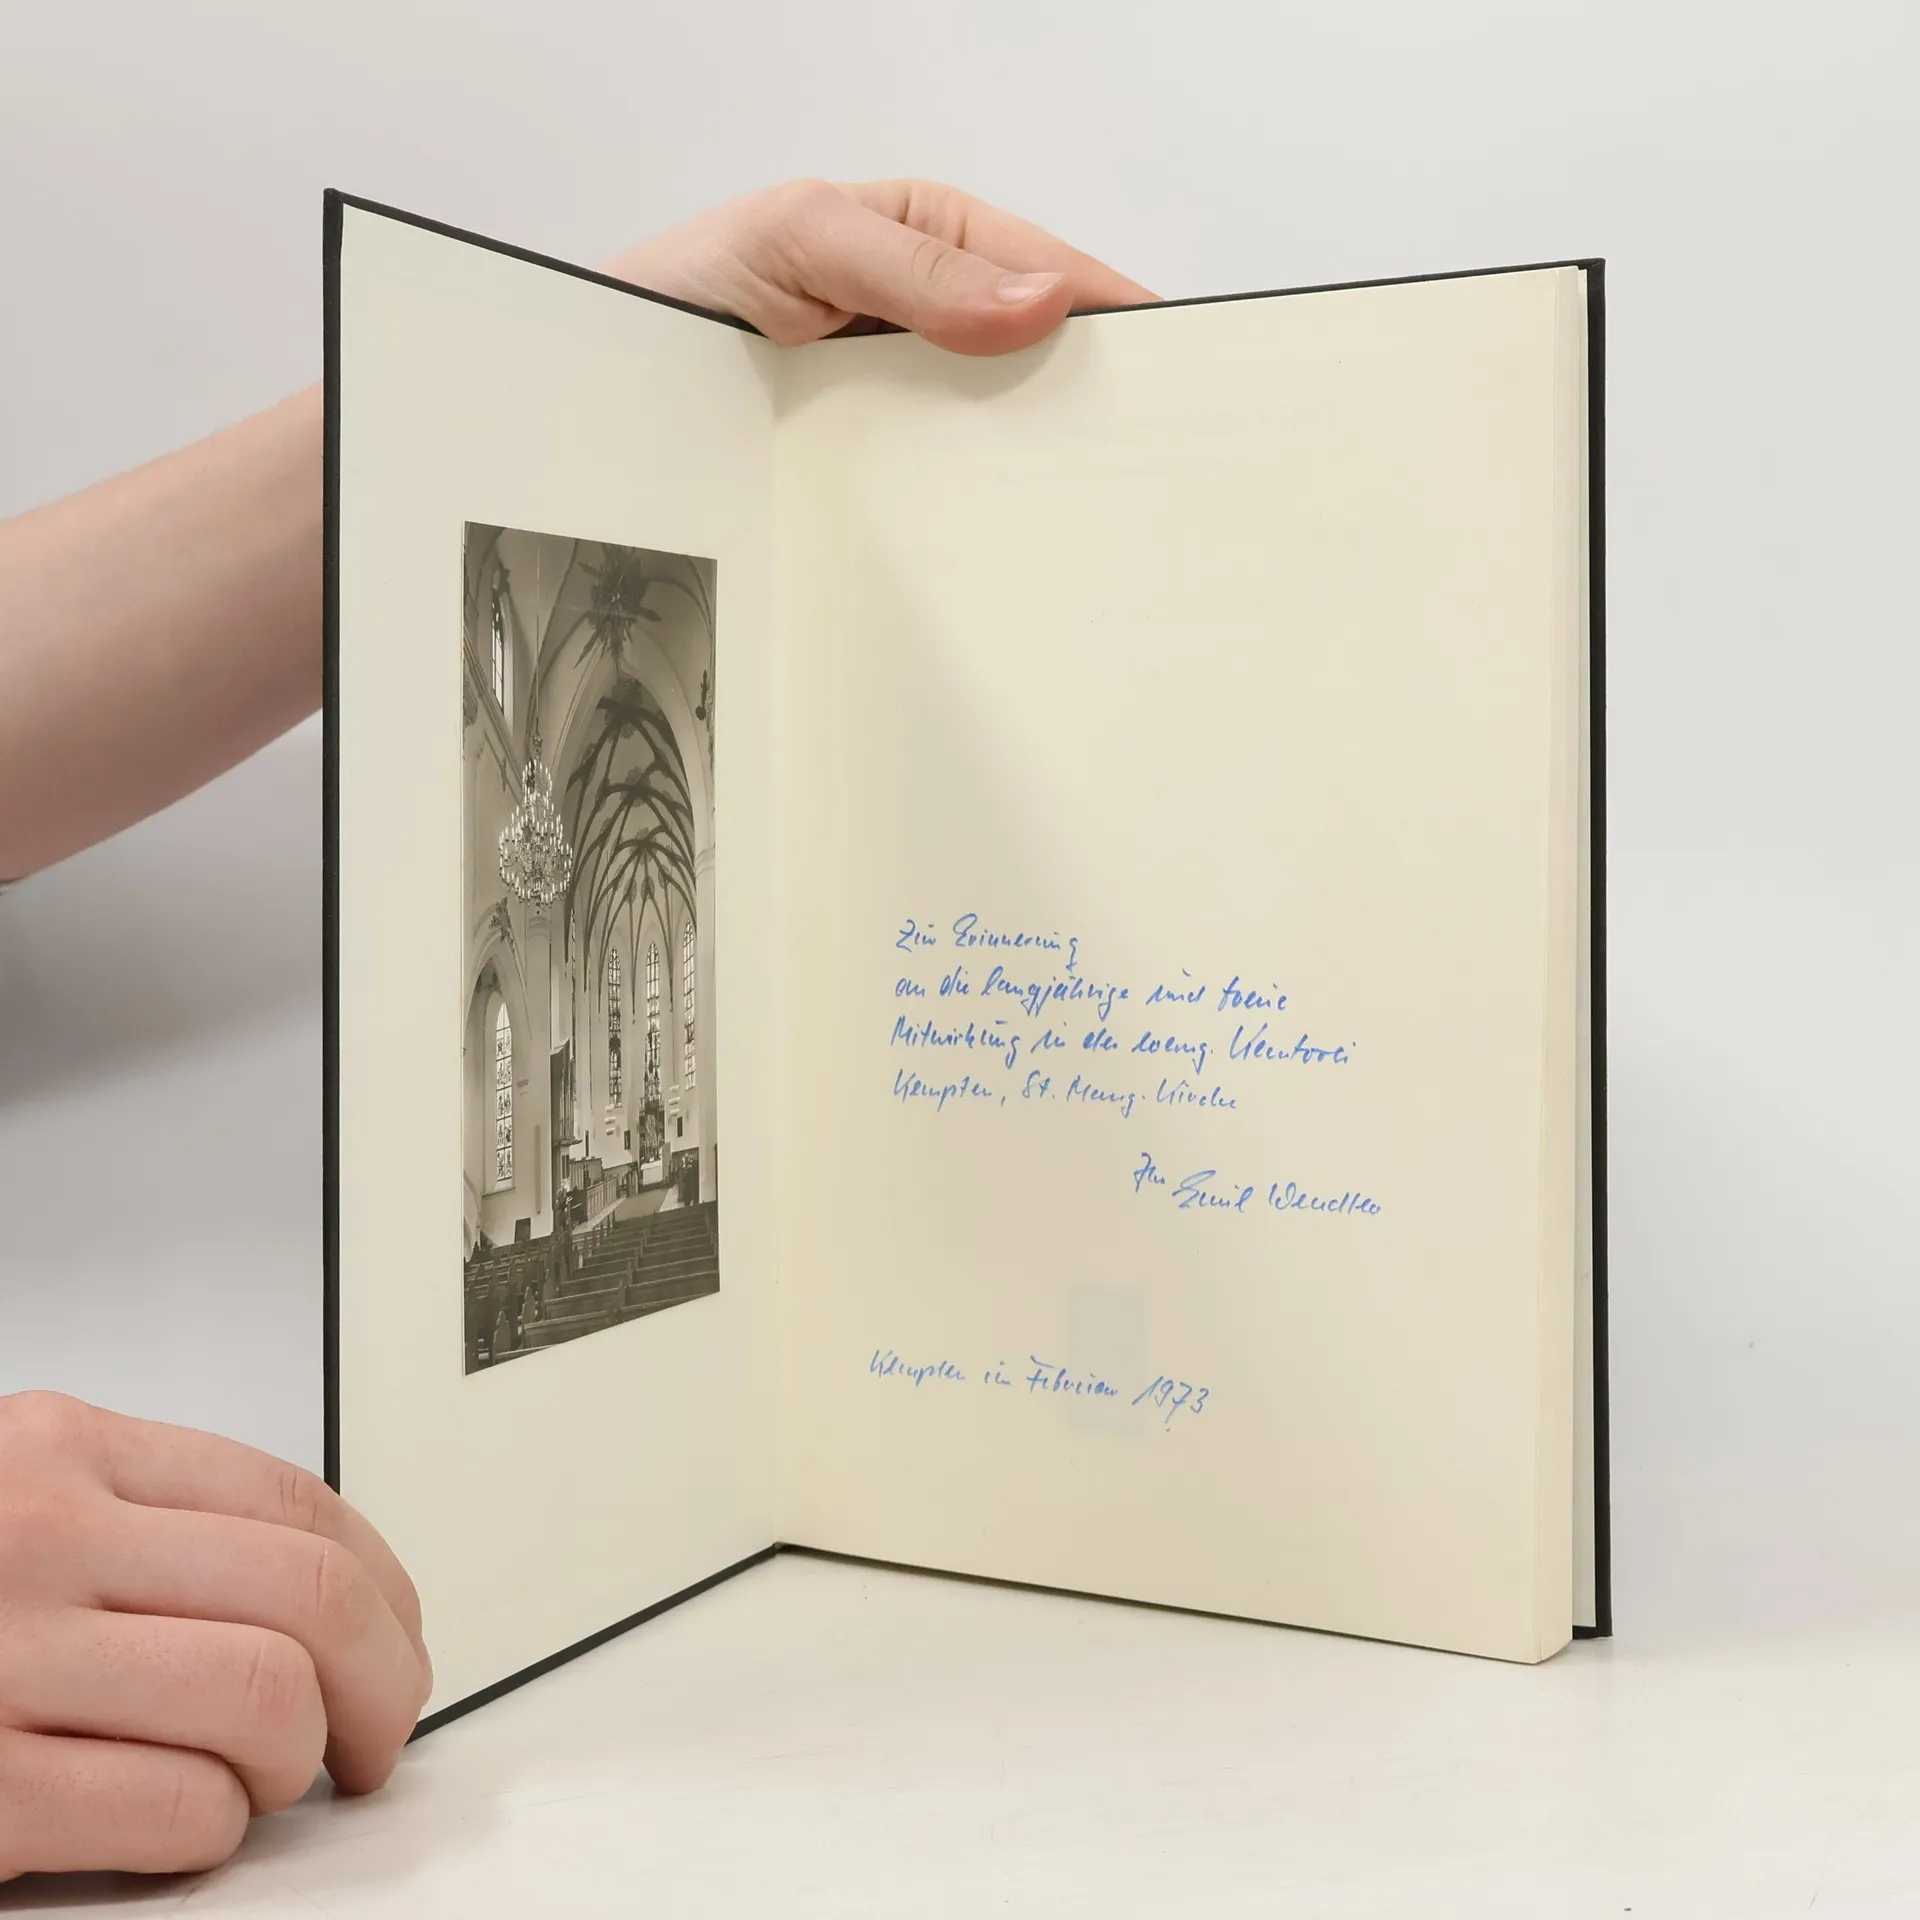 Zur Erinnerung
an die langjährige und treue
Mitwirkung in der evang. Kantorei
Kempten, St. Mang-Kirche
Ihr Emil Wendler
Kempten im Februar 1973